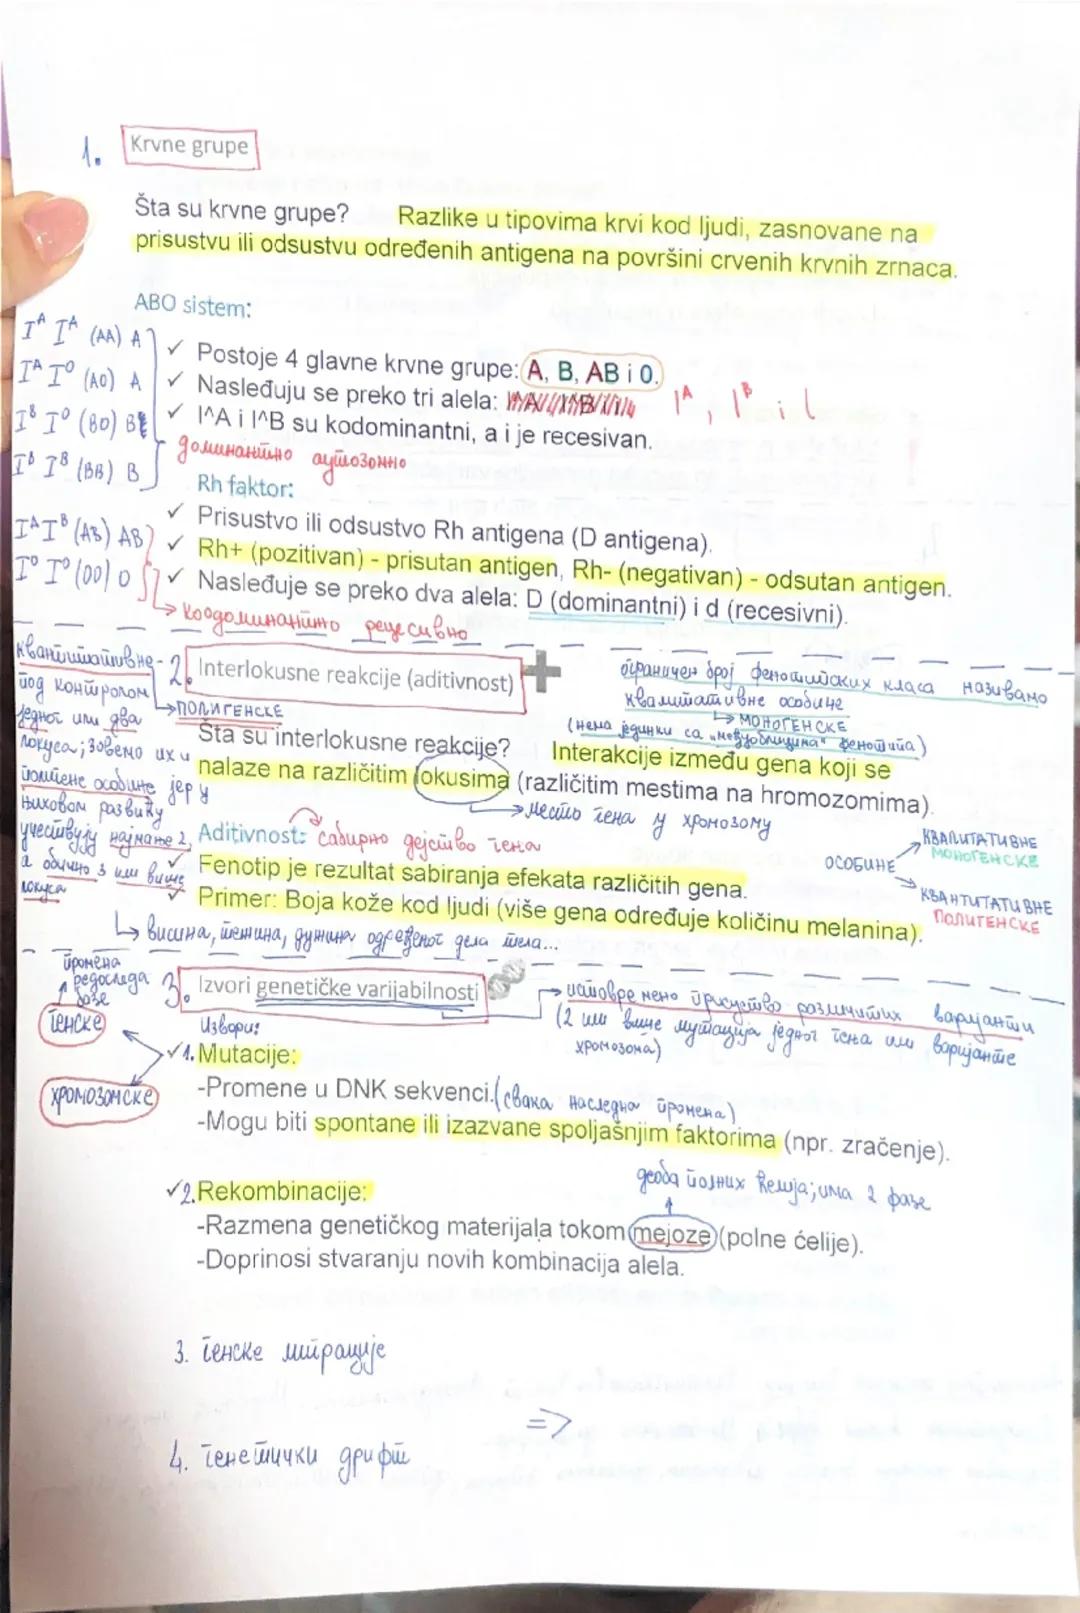 1. Krvne grupe
Šta su krvne grupe? Razlike u tipovima krvi kod ljudi, zasnovane na
prisustvu ili odsustvu određenih antigena na površini crvenih krvnih zrnaca.
ABO sistem:
I^A I^A (AA) A
I^A I^O (AO) A
I^B I^O (BO) B
I^B I^B (BB) B
✓ Postoje 4 glavne krvne grupe: A, B, AB i 0.
✓ Nasleđuju se preko tri alela: I^A, I^B i i
✓ I^A i I^B su kodominantni, a i je recesivan.
доминантно аутозомно
Rh faktor:
I^A I^B (AB) AB
I^O I^O (OO) O
✓ Prisustvo ili odsustvo Rh antigena (D antigena).
✓ Rh+ (pozitivan) - prisutan antigen, Rh- (negativan) - odsutan antigen.
✓ Nasleđuje se preko dva alela: D (dominantni) i d (recesivni).
коодоминантно рецесивно
2. Interlokusne reakcije (aditivnost)
ограничен број фенотипских класа називамо
квалитативне особине
→ МОНОГЕНСКЕ
(нема јединки са „међуоблицима“ фенотипа)
квантитативне-
→ПОЛИГЕНСКЕ
под контролом
једног или два
локуса; зовемо их и
полигене особине јер у
њиховом развићу
учествују најмање 2,
а обично 3 или више
локуса
Šta su interlokusne reakcije? Interakcije između gena koji se
nalaze na različitim lokusima (različitim mestima na hromozomima).
→ место гена у хромозому
Aditivnost: сабирно дејство гена
✓ Fenotip je rezultat sabiranja efekata različitih gena.
✓ Primer: Boja kože kod ljudi (više gena određuje količinu melanina).
ОСОБИНЕ
КВАЛИТАТИВНЕ
МОНОГЕНСКЕ
КВАНТИТАТИВНЕ
ПОЛИГЕНСКЕ
↳ висина, тежина, дужина одређеног дела тела...
3. Izvori genetičke varijabilnosti
→ истовремено присуство различитих варијанти
(2 или више мутација једног гена или варијанте
хромозома)
промена
редоследа
базе
генске
хромозомске
Извори:
✓1. Mutacije:
-Promene u DNK sekvenci. (свака наследна промена)
-Mogu biti spontane ili izazvane spoljašnjim faktorima (npr. zračenje).
деоба полних ћелија; има 2 фазе
✓2. Rekombinacije:
-Razmena genetičkog materijala tokom mejoze (polne ćelije).
-Doprinosi stvaranju novih kombinacija alela.
3. генске миграције
=>
4. генетички дрифт